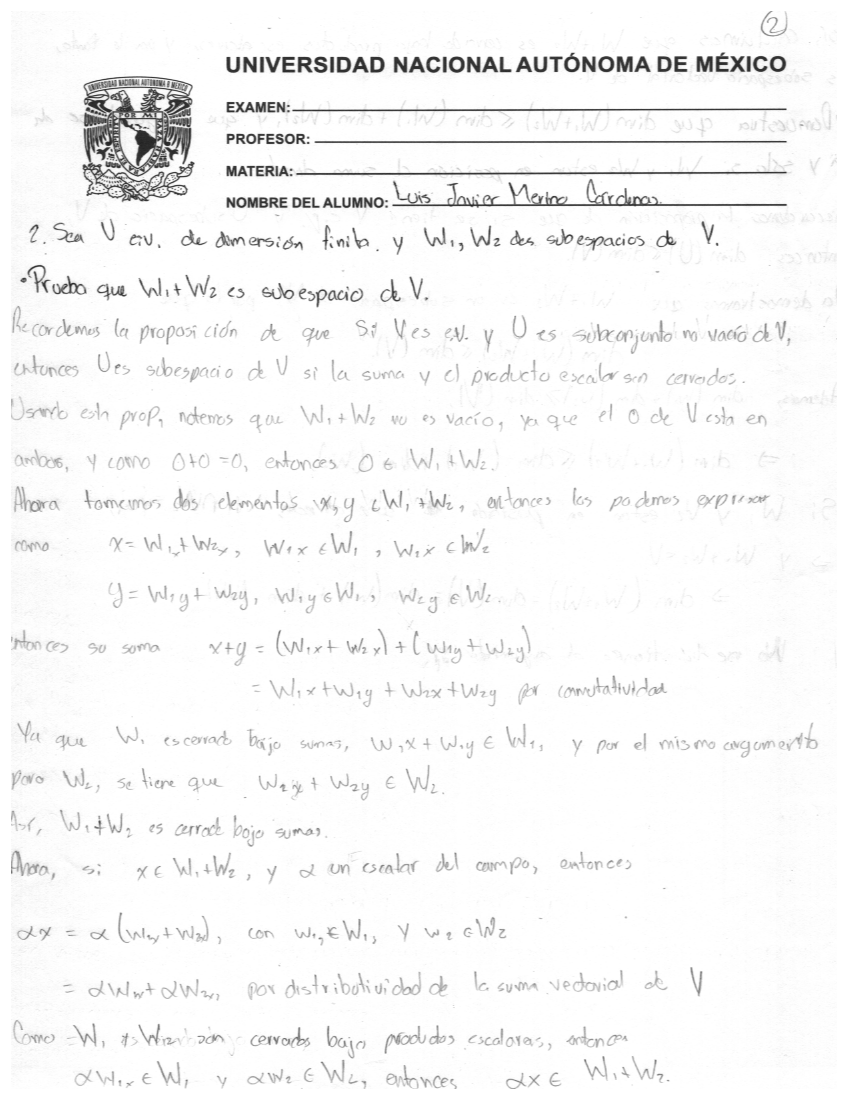 2
UNIVERSIDAD NACIONAL AUTÓNOMA DE MÉXICO
UNIVERSIDAD NACIONAL AUTONOMA D MEXICO
POR MI
EXAMEN:
PROFESOR:
MATERIA:
NOMBRE DEL ALUMNO: Luis Javier Merino Cardenas
2. Sea V e.v. de dimensión finita y W1, W2 des subespacios de V.
• Prueba que W1+W2 es subespacio de V.
Recordemos la proposición de que Si V es e.v. y U es subconjunto no vacío de V,
entonces U es subespacio de V si la suma y el producto escalar son cerrados.
Usando esta prop, notemos que W1+W2 no es vacío, ya que el 0 de V esta en
ambos, y como 0+0=0, entonces 0 ∈ W1+W2.
Ahora tomemos dos elementos x, y ∈ W1+W2, entonces los podemos expresar
como x = W1x+W2x, W1x ∈ W1, W1x ∈ W2
y = W1y + W2y, W1y ∈ W1, W2y ∈ W2.
entonces su suma x+y = (W1x+W2x)+(W1y+W2y)
= W1x+W1y + W2x+W2y por conmutatividad
Ya que W1 es cerrado bajo sumas, W1x+W1y ∈ W1, y por el mismo argumento
para W2, se tiene que W2x + W2y ∈ W2.
Así, W1+W2 es cerrado bajo sumas.
Ahora, si x ∈ W1+W2, y α un escalar del campo, entonces
αx = α (W1x+W2x), con w1x ∈ W1, y w2 ∈ W2
= αW1x + αW2x, por distributividad de la suma vectorial de V
Como W1 y W2 son cerrados bajo productos escalares, entonces
αW1x ∈ W1 y αw2 ∈ W2, entonces αx ∈ W1+W2.